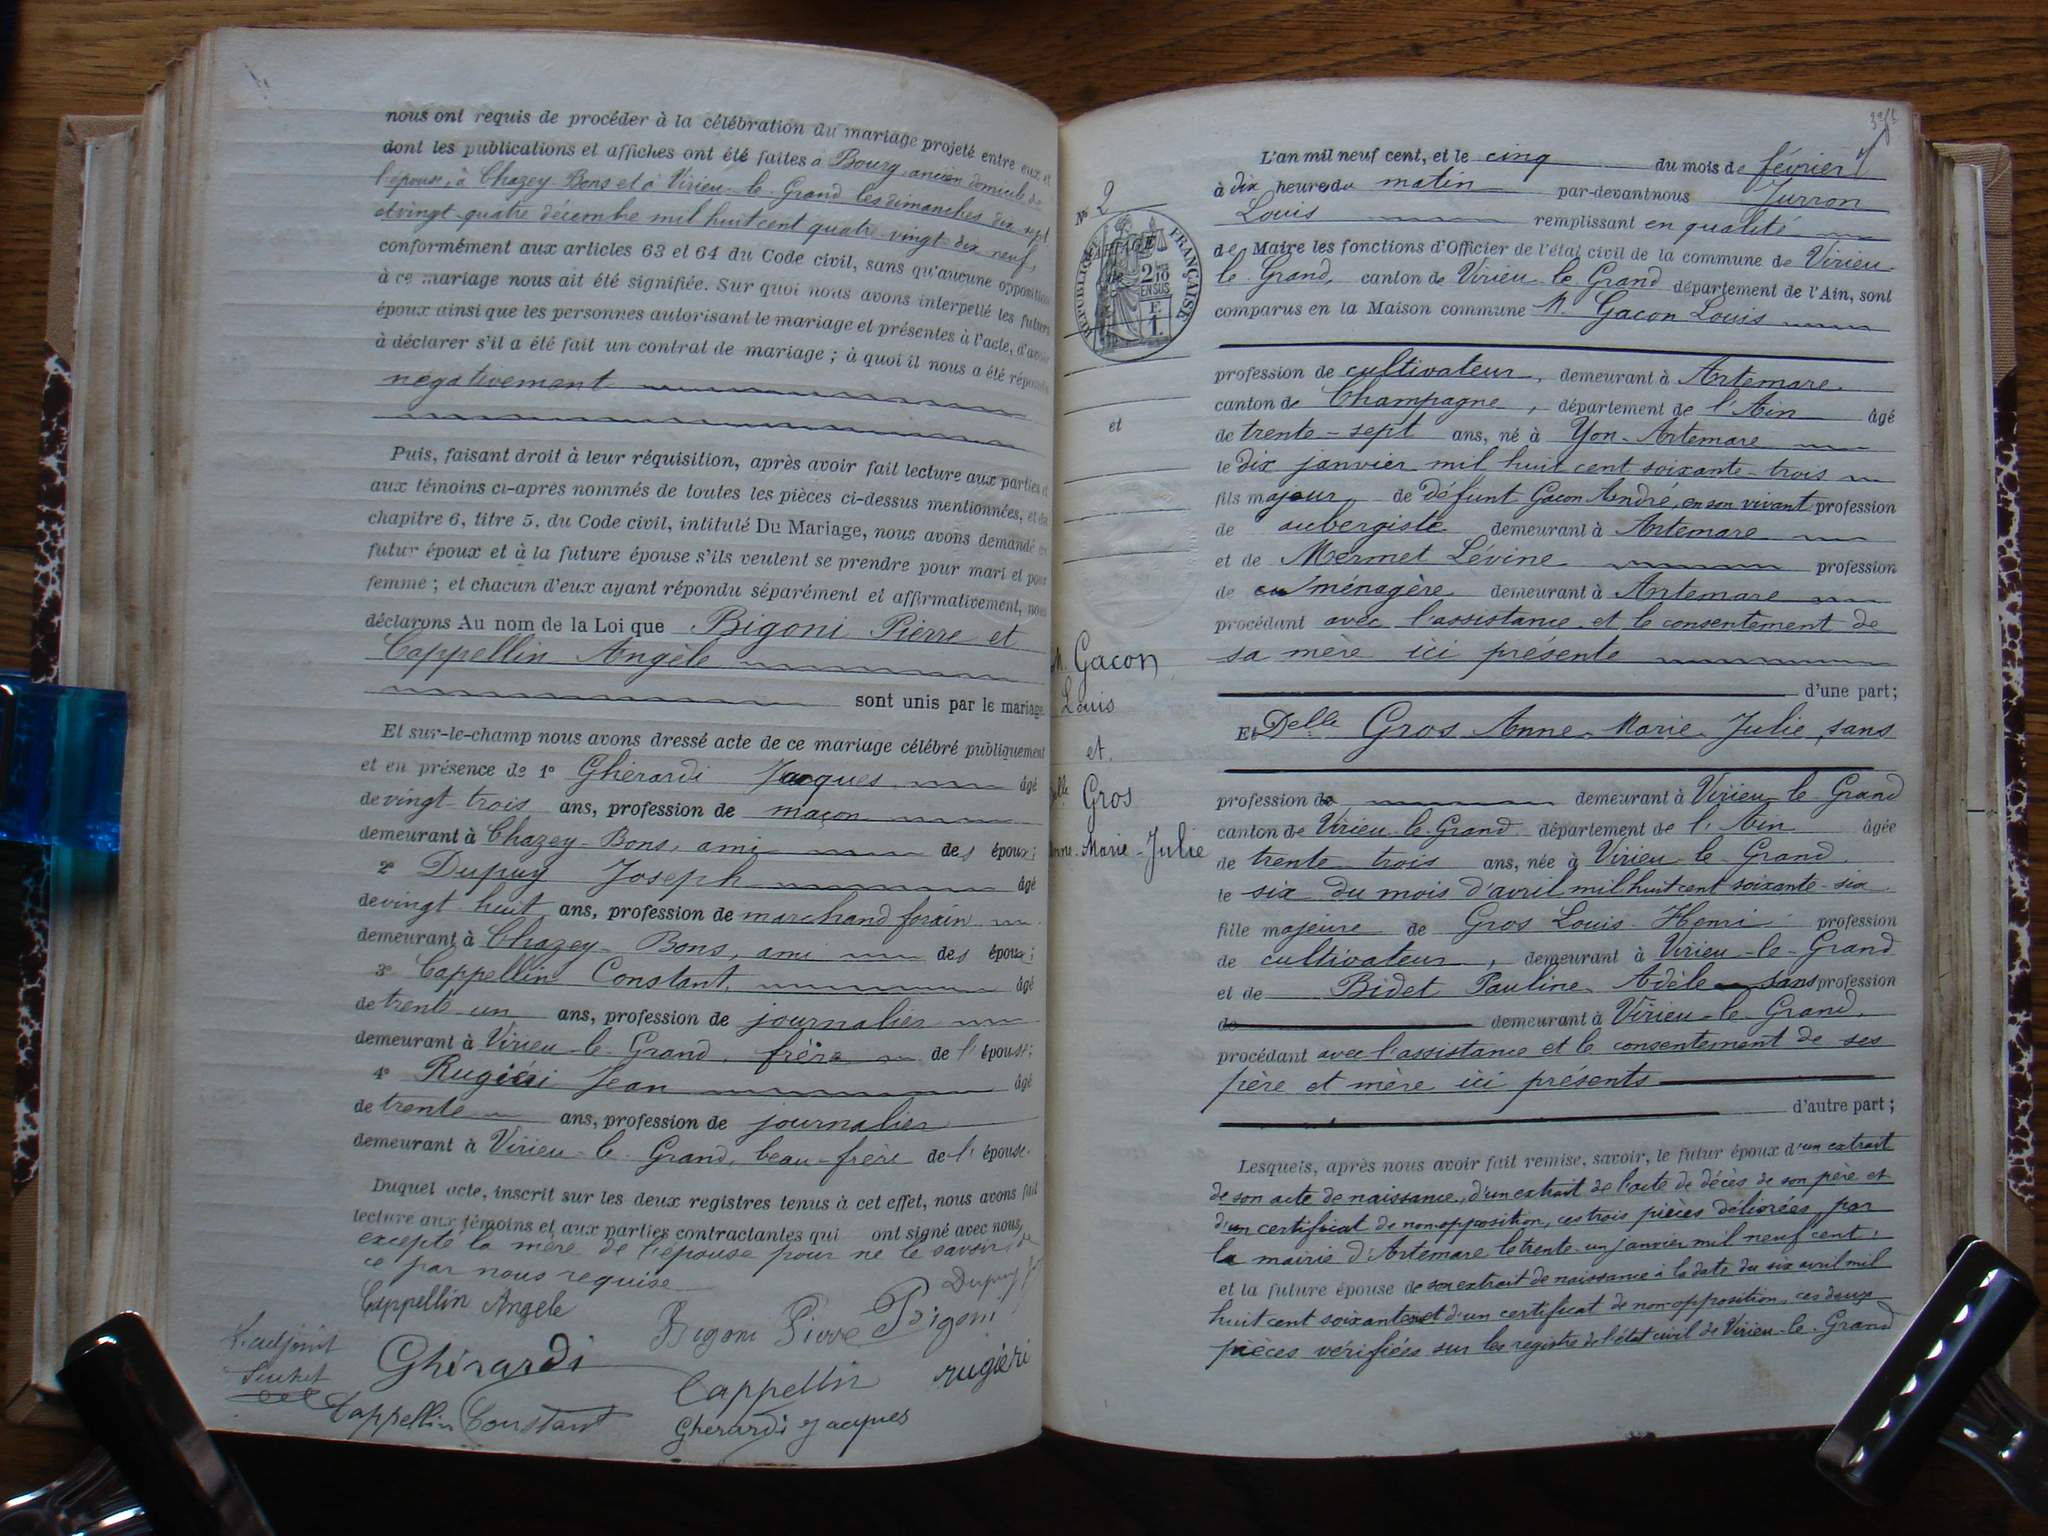 nous ont requis de procéder à la célébration du mariage projeté entre eux et
dont les publications et affiches ont été faites à Bourg, ancien domicile de
l'épouse, à Chazey-Bons et à Virieu-le-Grand les dimanches dix sept
et vingt-quatre décembre mil huit cent quatre-vingt-dix neuf,
conformément aux articles 63 et 64 du Code civil, sans qu'aucune opposition
à ce mariage nous ait été signifiée. Sur quoi nous avons interpellé les futurs
époux ainsi que les personnes autorisant le mariage et présentes à l'acte, d'avoir
à déclarer s'il a été fait un contrat de mariage ; à quoi il nous a été répondu
négativement
Puis, faisant droit à leur réquisition, après avoir fait lecture aux parties et
aux témoins ci-après nommés de toutes les pièces ci-dessus mentionnées, et du
chapitre 6, titre 5, du Code civil, intitulé Du Mariage, nous avons demandé au
futur époux et à la future épouse s'ils veulent se prendre pour mari et pour
femme ; et chacun d'eux ayant répondu séparément et affirmativement, nous
déclarons Au nom de la Loi que Bigoni Pierre et
Cappellin Angèle
sont unis par le mariage.
Et sur-le-champ nous avons dressé acte de ce mariage célébré publiquement
et en présence de 1º Ghérardi Jacques âgé
de vingt-trois ans, profession de maçon
demeurant à Chazey-Bons, ami des époux ;
2º Dupuy Joseph âgé
de vingt-huit ans, profession de marchand forain
demeurant à Chazey-Bons, ami des époux ;
3º Cappellin Constant, âgé
de trente un ans, profession de journalier
demeurant à Virieu-le-Grand, frère de l'épouse ;
4º Rugiéri Jean âgé
de trente ans, profession de journalier
demeurant à Virieu-le-Grand, beau-frère de l'épouse.
Duquel acte, inscrit sur les deux registres tenus à cet effet, nous avons fait
lecture aux témoins et aux parties contractantes qui ont signé avec nous,
excepté la mère de l'épouse pour ne le savoir de
ce par nous requise
Cappellin Angele
Bigoni Pierre Bigoni
Dupuy
L'adjoint
Ghirardi
Cappellin
rugiéri
Cappellin Constant
Gherardi Jacques
Nº 2
RÉPUBLIQUE FRANÇAISE
2 10
EN SUS
E
1.
et
M. Gacon
Louis
et
Delle Gros
Anne-Marie-Julie
L'an mil neuf cent, et le cinq du mois de février
à dix heures du matin par-devant nous Jurron
Louis remplissant en qualité
de Maire les fonctions d'Officier de l'état civil de la commune de Virieu-
le-Grand, canton de Virieu-le-Grand département de l'Ain, sont
comparus en la Maison commune M. Gacon Louis
profession de cultivateur, demeurant à Artemare
canton de Champagne, département de l'Ain âgé
de trente-sept ans, né à Yon-Artemare
le dix janvier mil huit cent soixante-trois
fils majeur de défunt Gacon André, en son vivant profession
de aubergiste demeurant à Artemare
et de Mermet Lévine profession
de ménagère demeurant à Artemare
procédant avec l'assistance et le consentement de
sa mère ici présente
d'une part ;
Et Delle Gros Anne-Marie-Julie, sans
profession de demeurant à Virieu-le-Grand
canton de Virieu-le-Grand département de l'Ain âgée
de trente-trois ans, née à Virieu-le-Grand
le six du mois d'avril mil huit cent soixante-six
fille majeure de Gros Louis-Henri profession
de cultivateur, demeurant à Virieu-le-Grand
et de Bidet Pauline Adèle sans profession
de demeurant à Virieu-le-Grand,
procédant avec l'assistance et le consentement de ses
père et mère ici présents
d'autre part ;
Lesquels, après nous avoir fait remise, savoir, le futur époux d'un extrait
de son acte de naissance, d'un extrait de l'acte de décès de son père et
d'un certificat de non-opposition, ces trois pièces délivrées par
la mairie d'Artemare le trente-un janvier mil neuf cent ;
et la future épouse de son extrait de naissance à la date du six avril mil
huit cent soixante-six et d'un certificat de non-opposition, ces deux
pièces vérifiées sur les registre de l'état civil de Virieu-le-Grand